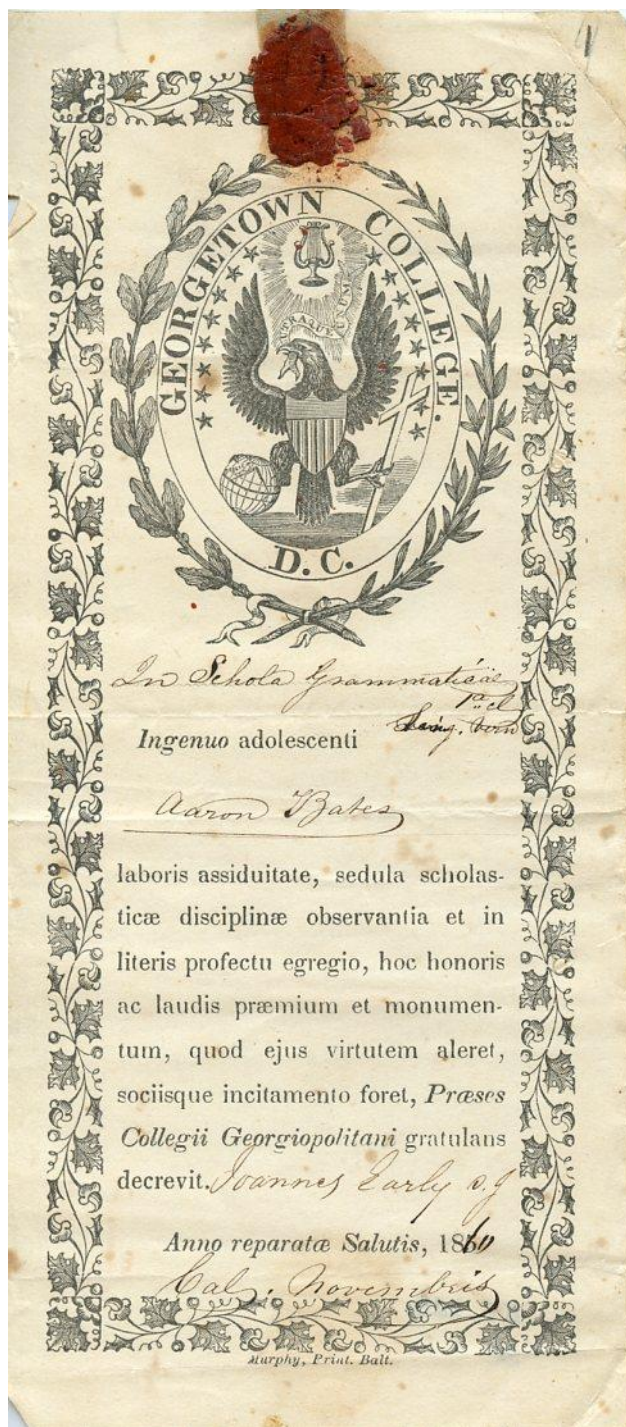 1
GEORGETOWN COLLEGE.
UTRAQUE UNUM
D.C.
In Schola Grammaticae
1ᵃ cl
Ingenuo adolescenti
Aaron Bates
laboris assiduitate, sedula scholas-
ticæ disciplinæ observantia et in
literis profectu egregio, hoc honoris
ac laudis præmium et monumen-
tum, quod ejus virtutem aleret,
sociisque incitamento foret, Præses
Collegii Georgiopolitani gratulans
decrevit. Joannes Early s.j
Anno reparatæ Salutis, 1860
Cal. Novembris
Murphy, Print. Balt.